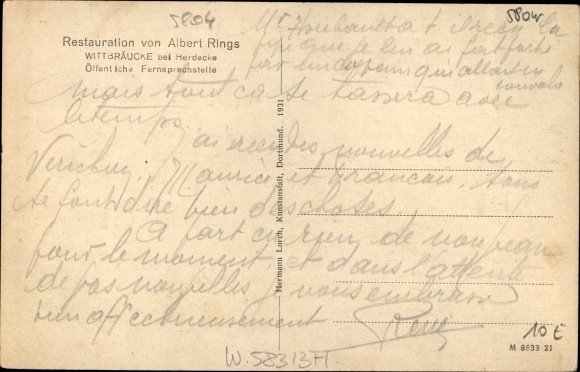 5804
580W
Restauration von Albert Rings
WITTBRÄUCKE bei Herdecke
Öffentliche Fernsprechstelle
Mr a reçu la
que je lui ai fait faire
par un qui allait en
convale
mais tout ça se tassera avec
le temps.
J'ai eu des nouvelles de
Maurice et François. Tous
te font dire bien des choses.
A part ça rien de nouveau
pour le moment et dans l'attente
de vos nouvelles je vous embrasse
bien affectueusement René
Hermann Lorch, Kunstanstalt, Dortmund. 1931
10 €
W. 58313H
M 8633 21